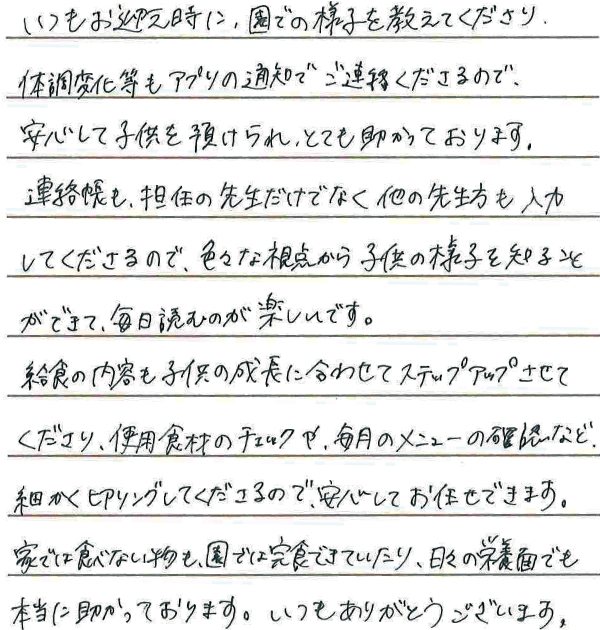 いつもお迎え時に、園での様子を教えてくださり、
体調変化等もアプリの通知でご連絡くださるので、
安心して子供を預けられ、とても助かっております。
連絡帳も、担任の先生だけでなく他の先生方も入力
してくださるので、色々な視点から子供の様子を知ること
ができて、毎日読むのが楽しいです。
給食の内容も子供の成長に合わせてステップアップさせて
くださり、使用食材のチェックや、毎月のメニューの確認など、
細かくヒアリングしてくださるので、安心してお任せできます。
家では食べない物も、園では完食できていたり、日々の栄養面でも
本当に助かっております。いつもありがとうございます。